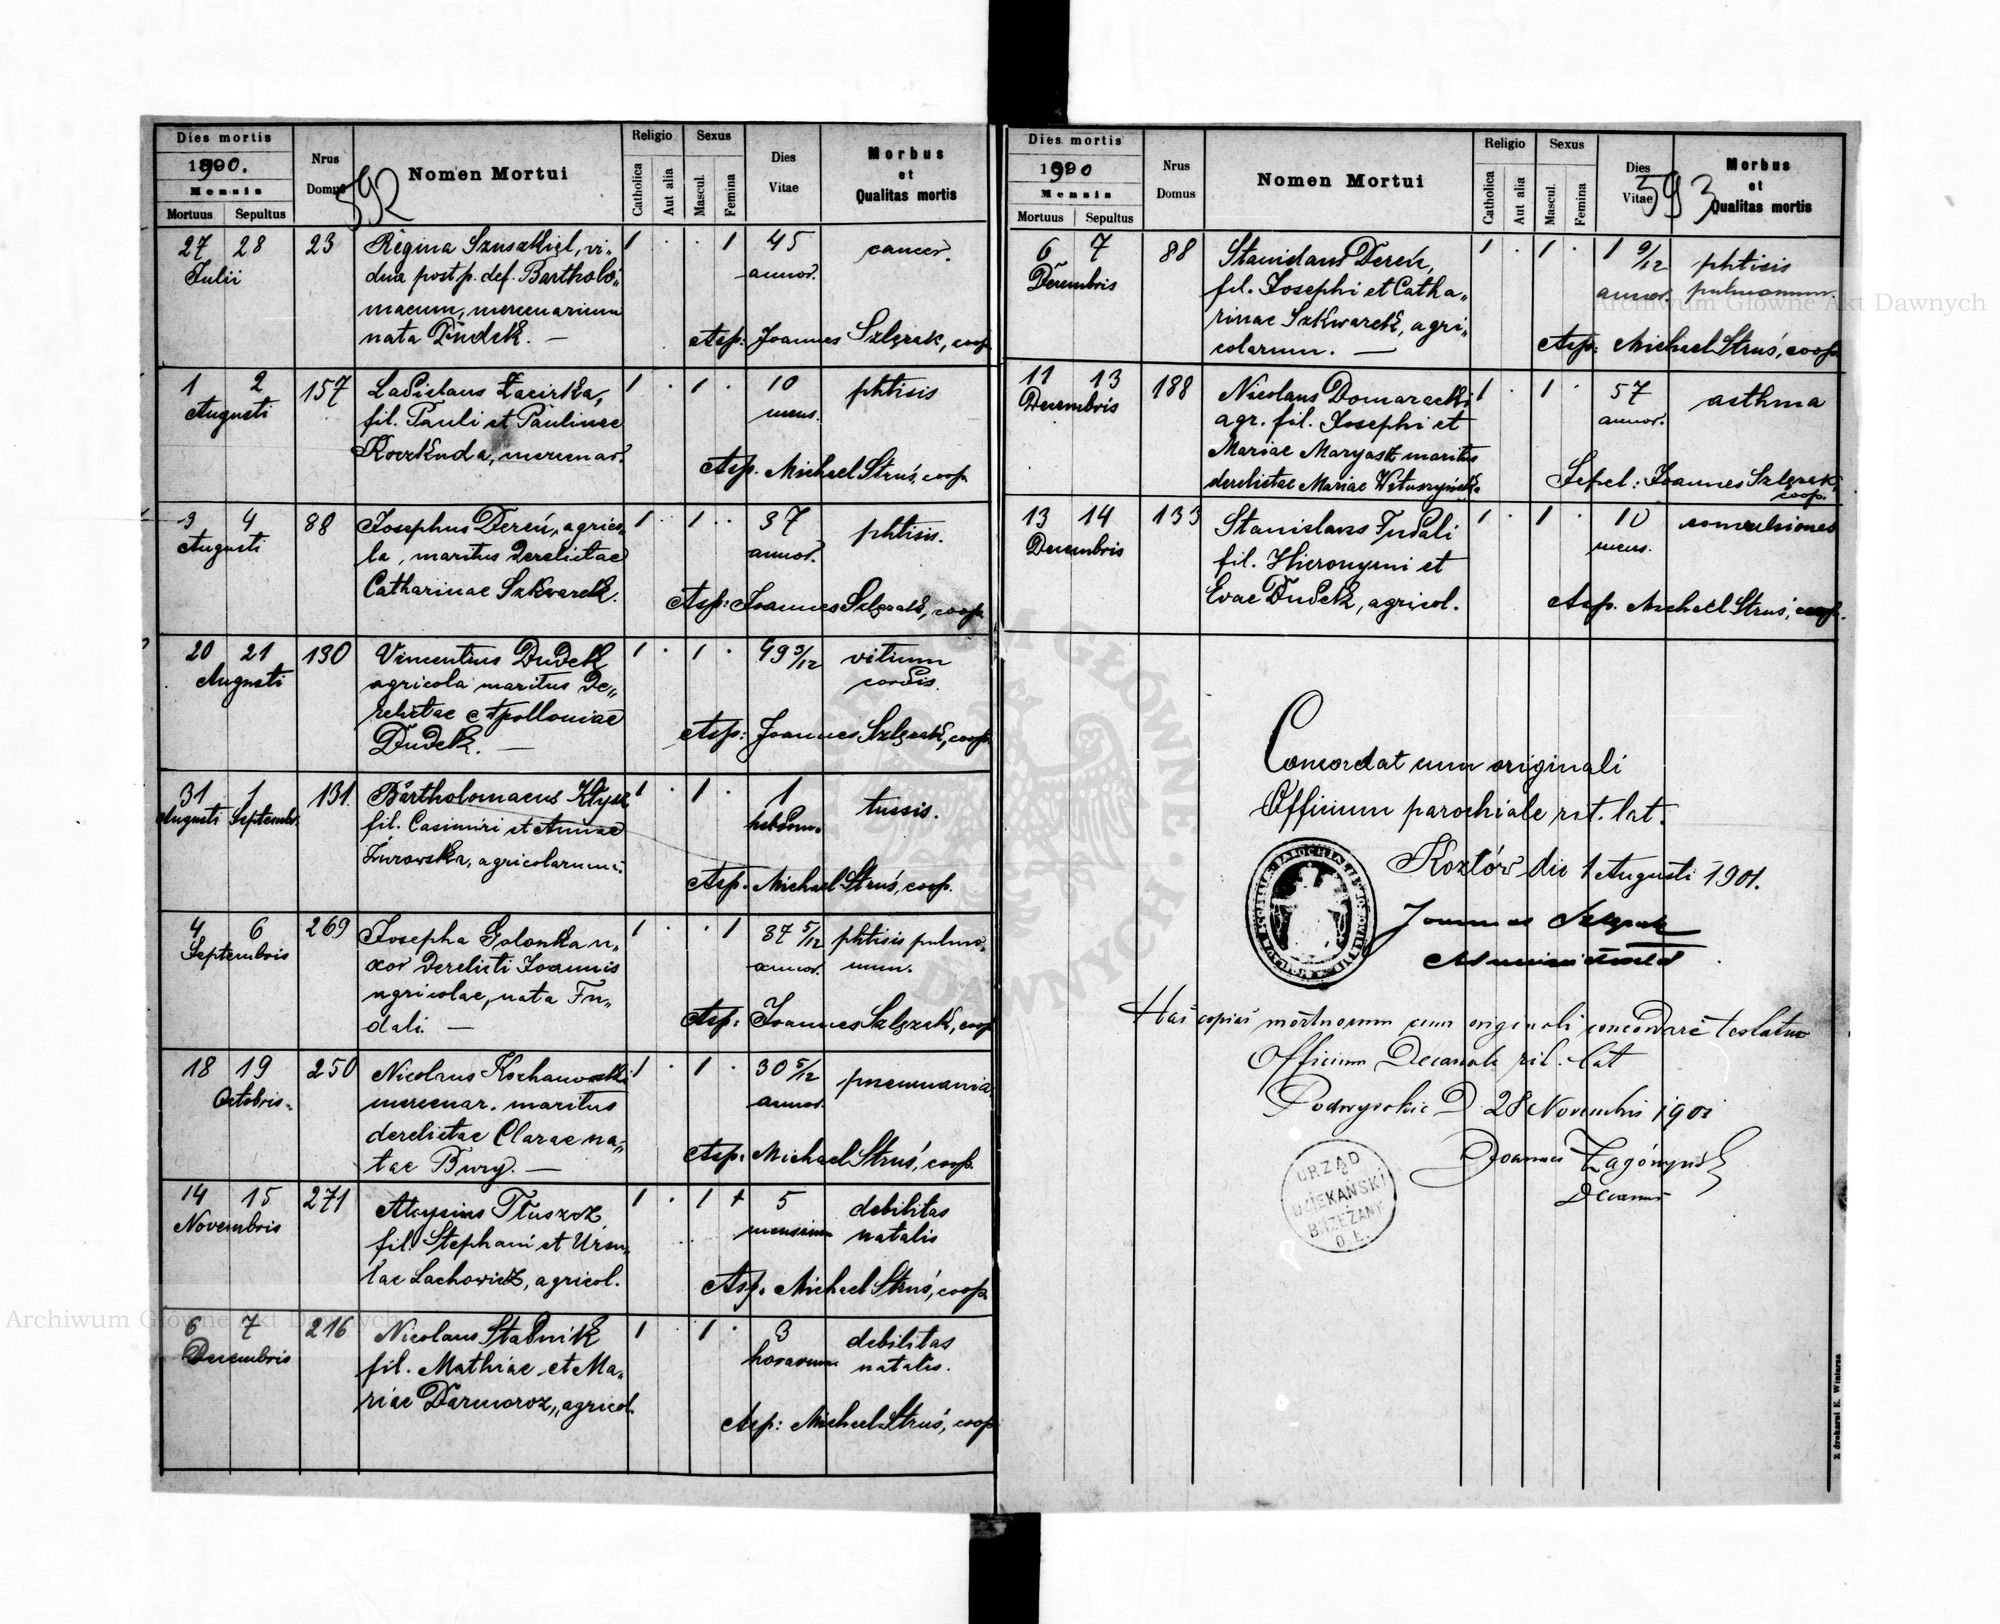 Dies mortis
1900.
Mensis
Mortuus Sepultus
Nrus
Domus
592
Nomen Mortui
Religio
Catholica
Aut alia
Sexus
Mascul.
Femina
Dies
Vitae
Morbus
et
Qualitas mortis
27 28 23 Regina Szuszkiel, vi„ 1 · · 1 45 cancer.
Julii dua post p. def. Bartholo„ annor.
maeum, mercenarium
nata Dudek. — Asp: Joannes Szlęzak, coop.
1 2 157 Ladislaus 1 · 1 · 10 phtisis
Augusti fil. Pauli et Paulinae mens.
mercenar. Asp. Michael Struś, coop.
3 4 88 Josephus Dereń, agrico„ 1 · 1 · 37 phtisis.
Augusti la, maritus derelictae annor.
Catharinae Szkwarek. Asp: Joannes Szlęzak, coop.
20 21 130 Vincentius Dudek 1 · 1 · 49 3/12 vitium
Augusti agricola maritus de„ cordis.
relictae Apolloniae
Dudek. — Asp: Joannes Szlęzak, coop.
31 1 131. Bartholomaeus Kłysz 1 · 1 · 1 tussis.
Augusti Septembr. fil. Casimiri et Annae hebdom.
Żurowska, agricolarum. Asp. Michael Struś, coop.
4 6 269 Josepha Golonka u„ 1 · · 1 37 5/12 phtisis pulmo„
Septembris xor derelicti Joannis annor. num.
agricolae, nata Fu„
dali. — Asp: Joannes Szlęzak, coop
18 19 250 Nicolaus Kochanowski 1 · 1 · 30 5/12 pneumonia
Octobris. mercenar. maritus annor.
derelictae Clarae na„
tae Bury. — Asp. Michael Struś, coop.
14 15 271 Aloysius Tłuszcz 1 · 1 + 5 debilitas
Novembris fil. Stephani et Ursu„ mensium natalis
lae Lachowicz, agricol. Asp. Michael Struś, coop.
6 7 216 Nicolaus Stadnik 1 · 1 · 3 debilitas
Decembris fil. Mathiae et Ma„ horarum natalis.
riae Darmoroz, agricol. Asp: Michael Struś, coop
Dies mortis
1900
Mensis
Mortuus Sepultus
Nrus
Domus
Nomen Mortui
Religio
Catholica
Aut alia
Sexus
Mascul.
Femina
Dies
Vitae
593
Morbus
et
Qualitas mortis
6 7 88 Stanislaus Dereń, 1 · 1 · 1 9/12 phtisis
Decembris fil. Josephi et Catha„ annor. pulmonum.
rinae Szkwarek, agri„
colarum. — Asp: Michael Struś, coop.
11 13 188 Nicolaus Domaracki 1 · 1 · 57 asthma
Decembris agr. fil. Josephi et annor.
Mariae Maryask maritus
derelictae Mariae Wituszyńska Sepel: Joannes Szlęzak, coop.
13 14 133 Stanislaus Fudali 1 · 1 · 10 convulsiones
Decembris fil. Hieronymi et mens.
Evae Dudek, agricol. Asp. Michael Struś, coop.
Concordat cum originali
Officium parochiale rit. lat.
Kozłów die 1 Augusti 1901.
Joannes Szlęzak
Administrator
Has copias mortuorum cum originali concordare testatur
Officium Decanale rit. lat
Podwysokie D 28 Novembris 1901
Joannes
Decanus
URZĄD
DZIEKAŃSKI
BRZEŻANY
O. Ł.
Z drukarni E. Winiarza
Archiwum Główne Akt Dawnych
Archiwum Główne Akt Dawnych